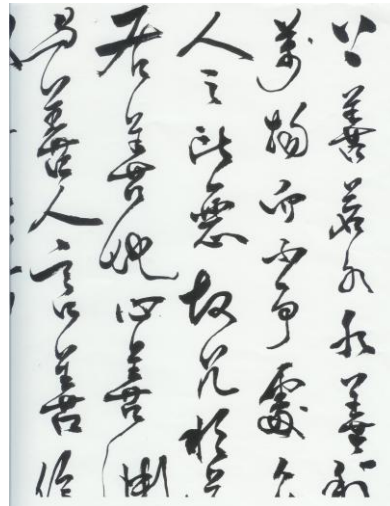 上善若水水善利
萬物而不爭處众
人之所惡故几於道
居善地心善淵
與善人言善信